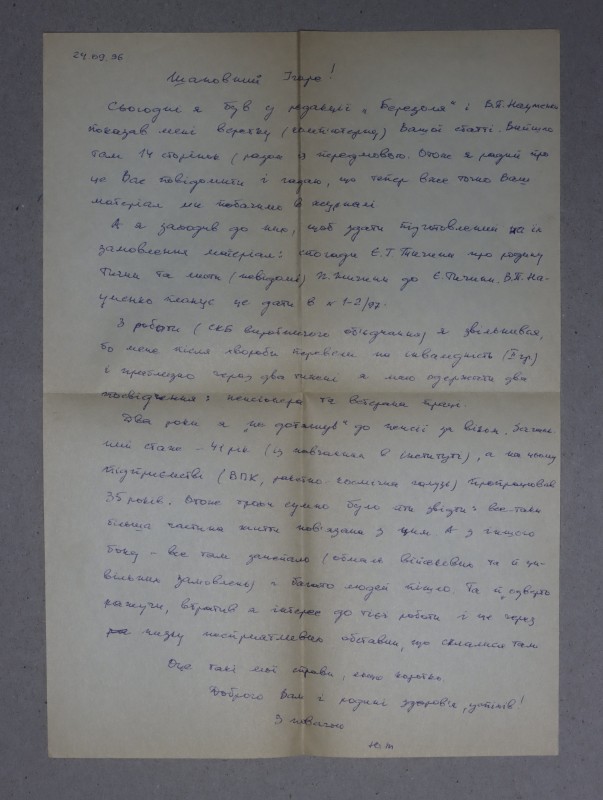 24.09.96
Шановний Ігоре!
Сьогодні я був у редакції „Березоля" і В.П. Науменко
показав мені верстку (комп'ютерну) Вашої статті. Вийшло
там 14 сторінок (разом із передмовою). Отож я радий про
це Вас повідомити і гадаю, що тепер вже точно Ваш
матеріал ми побачимо в журналі
А я заходив до них, щоб здати підготовлений на їх
замовлення матеріал: спогади Є.Г. Тичини про родину
Тичин та листи (невідомі) П. Тичини до Є. Тичини. В.П. На-
уменко планує це дати в № 1-2/97.
З роботи (СКБ виробничого об'єднання) я звільнився,
бо мене після хвороби перевели на інвалідність (ІІ гр)
і приблизно через два тижні я маю одержати два
посвідчення: пенсіонера та ветерана праці.
Два роки я „не дотягнув" до пенсії за віком. Загаль-
ний стаж - 41 рік (із навчанням в інституті), а на цьому
підприємстві (ВПК, ракетно космічна галузь) пропрацював
35 років. Отож трохи сумно було йти звідти: все-таки
більша частина життя пов'язана з цим. А з іншого
боку - все там занепало (обмаль військових та й ци-
вільних замовлень) і багато людей пішло. Та й, відверто
кажучи, втратив я інтерес до тієї роботи і ще через
низку несприятливих обставин, що склалися там
Оце такі мої справи, якщо коротко.
Доброго Вам і родині здоров'я, успіхів!
З повагою